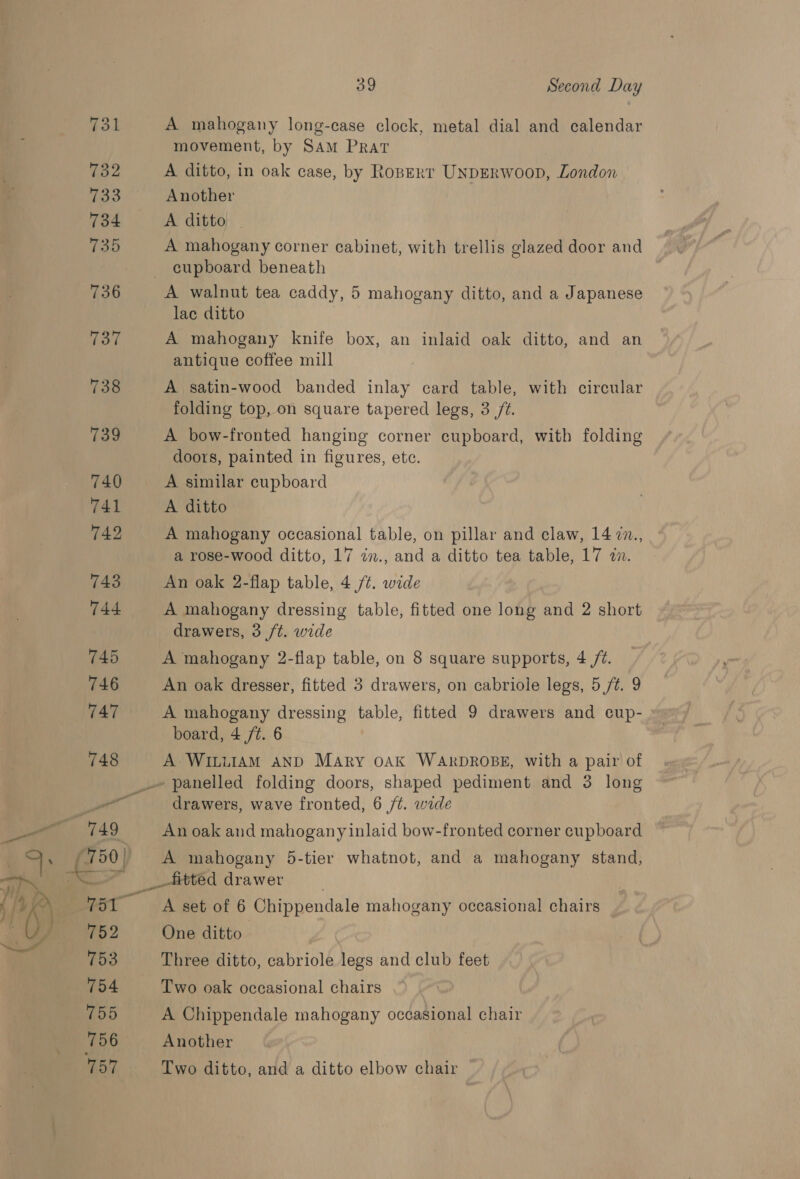 39 Second Day
731 A mahogany long-case clock, metal dial and calendar
movement, by SAM PRAT
732 A ditto, in oak case, by ROBERT UNDERWOOD, London
733 Another
734 A ditto
735 A mahogany corner cabinet, with trellis glazed door and
cupboard beneath
736 A walnut tea caddy, 5 mahogany ditto, and a Japanese
lac ditto
737 A mahogany knife box, an inlaid oak ditto, and an
antique coffee mill
738 A satin-wood banded inlay card table, with circular
folding top, on square tapered legs, 3 ft.
739 A bow-fronted hanging corner cupboard, with folding
doors, painted in figures, etc.
740 A similar cupboard
741 A ditto
742 A mahogany occasional table, on pillar and claw, 14 in.,
a rose-wood ditto, 17 in., and a ditto tea table, 17 in.
743 An oak 2-flap table, 4 ft. wide
744 A mahogany dressing table, fitted one long and 2 short
drawers, 3 ft. wide
745 A mahogany 2-flap table, on 8 square supports, 4 ft.
746 An oak dresser, fitted 3 drawers, on cabriole legs, 5 ft. 9
747 A mahogany dressing table, fitted 9 drawers and cup-
board, 4 ft. 6
748 A WILLIAM AND MARY OAK WARDROBE, with a pair of
panelled folding doors, shaped pediment and 3 long
drawers, wave fronted, 6 ft. wide
749 An oak and mahogany inlaid bow-fronted corner cupboard
750 A mahogany 5-tier whatnot, and a mahogany stand,
fitted drawer
751 A set of 6 Chippendale mahogany occasional chairs
752 One ditto
753 Three ditto, cabriole legs and club feet
754 Two oak occasional chairs
755 A Chippendale mahogany occasional chair
756 Another
757 Two ditto, and a ditto elbow chair